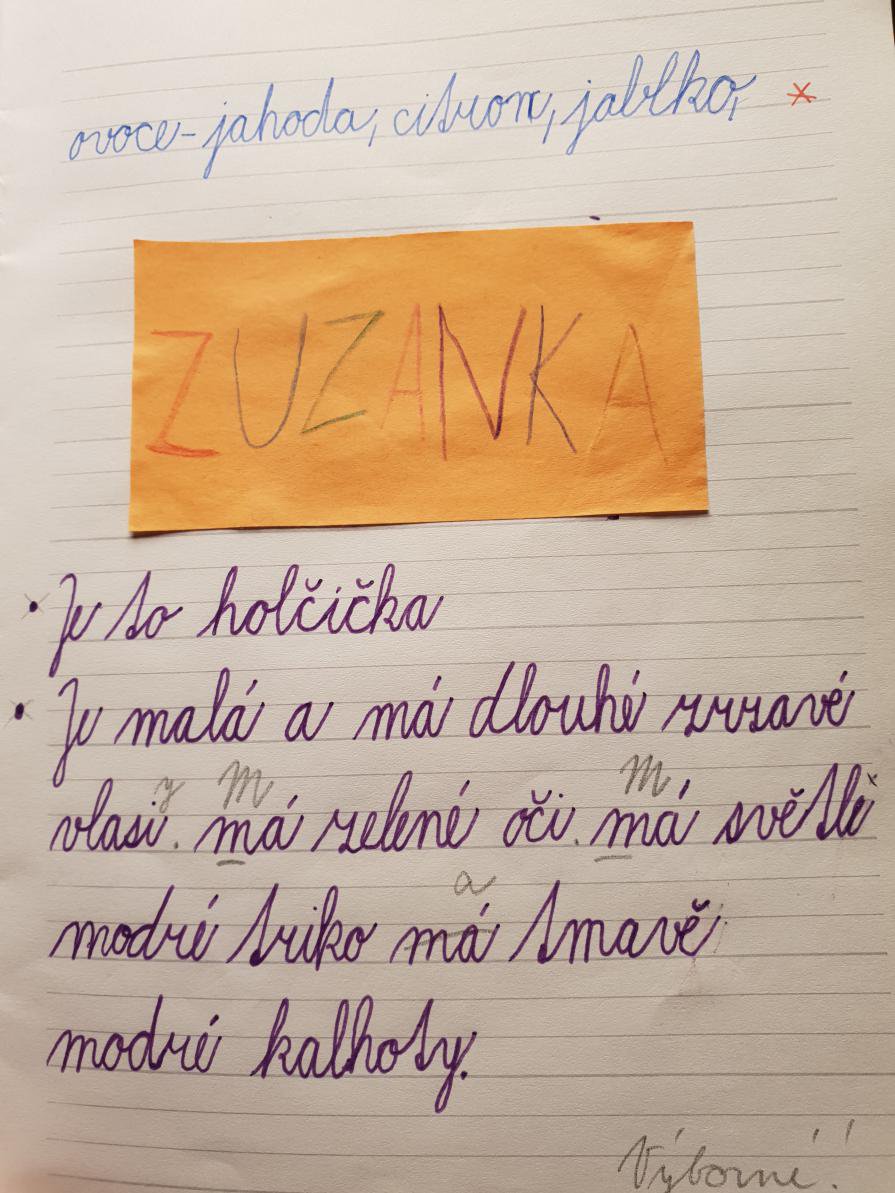 ovoce-jahoda, citron, jablko,
ZUZANKA
Je to holčička
Je malá a má dlouhé zrzavé
y M M
vlasi. má zelené oči. má světle
a
modré triko má tmavě
modré kalhoty.
Výborné!